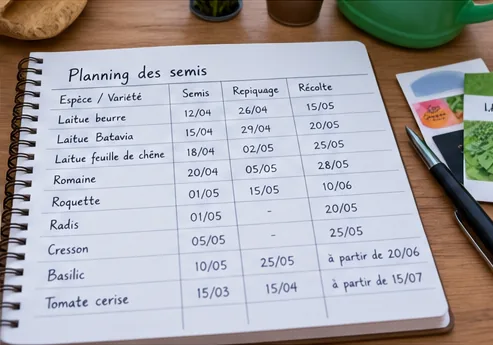 Planning des semis
Espèce / Variété Semis Repiquage Récolte
Laitue beurre 12/04 26/04 15/05
Laitue Batavia 15/04 29/04 20/05
Laitue feuille de chêne 18/04 02/05 25/05
Romaine 20/04 05/05 28/05
Roquette 01/05 15/05 10/06
Radis 01/05 - 20/05
Cresson 05/05 - 25/05
Basilic 10/05 25/05 à partir de 20/06
Tomate cerise 15/03 15/04 à partir de 15/07